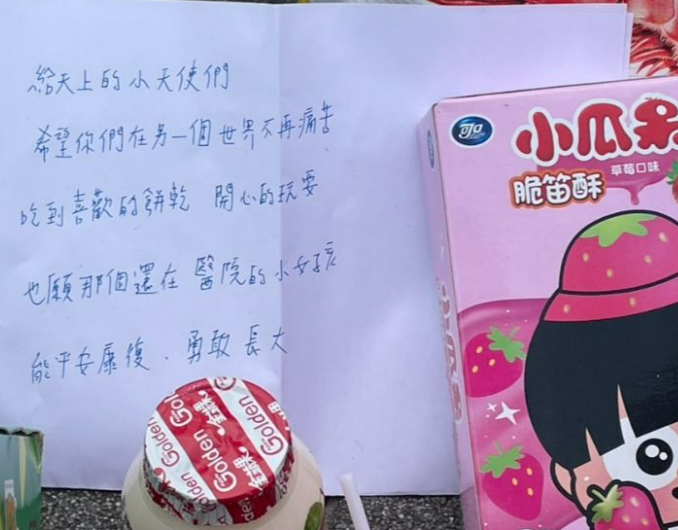 給天上的小天使們
希望你們在另一個世界不再痛苦
吃到喜歡的餅乾 開心的玩耍
也願那個還在醫院的小女孩
能平安康復、勇敢長大
可口
小瓜呆
草莓口味
脆笛酥
小瓜呆
Golden
Golden
Golden
Golden